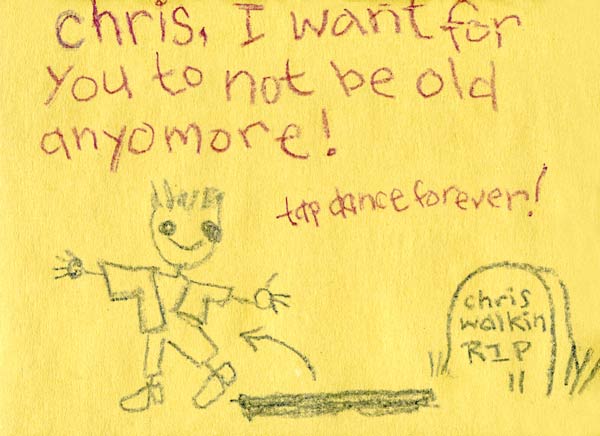 chris, I want for
you to not be old
anyomore!
tap dance forever!
chris
walkin
RIP